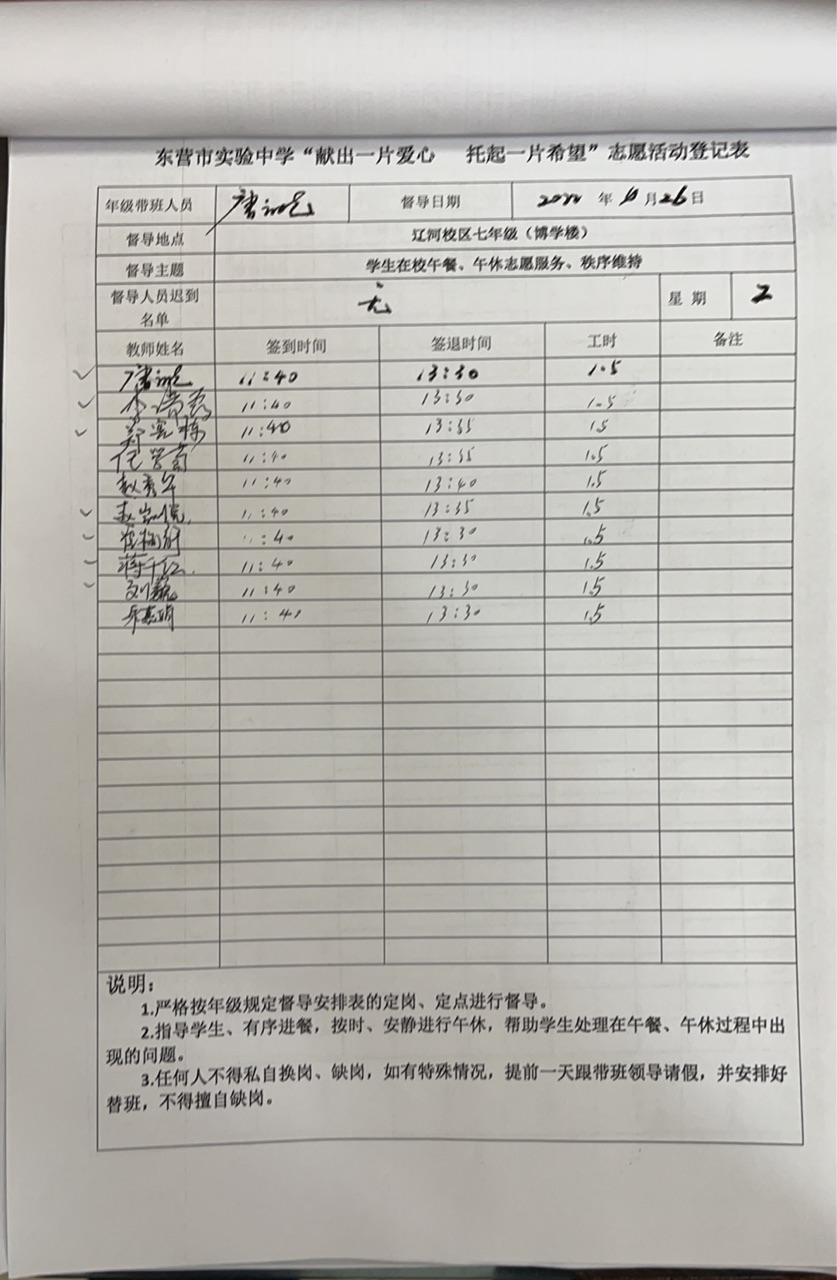 东营市实验中学“献出一片爱心 托起一片希望”志愿活动登记表
年级带班人员 督导日期 年 月26日
督导地点 辽河校区七年级（博学楼）
督导主题 学生在校午餐、午休志愿服务、秩序维持
督导人员迟到名单 无 星 期 2
教师姓名 签到时间 签退时间 工时 备注
11:40 13:30 1.5
11:40 13:30 1.5
11:40 13:35 1.5
11:40 13:35 1.5
11:40 13:40 1.5
11:40 13:35 1.5
:40 13:30 1.5
蒋千红 11:40 13:30 1.5
刘巍 11:40 13:30 1.5
11:40 13:30 1.5
说明：
1.严格按年级规定督导安排表的定岗、定点进行督导。
2.指导学生、有序进餐，按时、安静进行午休，帮助学生处理在午餐、午休过程中出
现的问题。
3.任何人不得私自换岗、缺岗，如有特殊情况，提前一天跟带班领导请假，并安排好
替班，不得擅自缺岗。